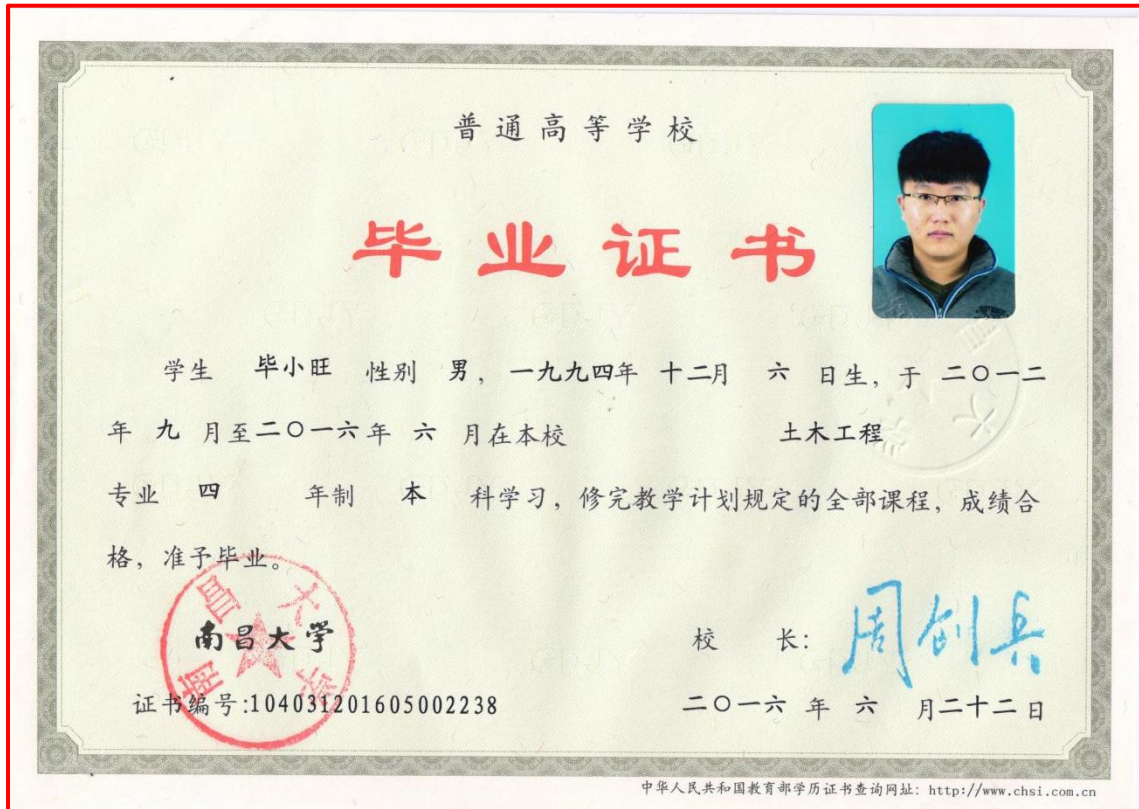 普通高等学校
毕业证书
学生 毕小旺 性别 男，一九九四年 十二月 六 日生，于 二〇一二
年 九 月至二〇一六年 六 月在本校 土木工程
专业 四 年制 本 科学习，修完教学计划规定的全部课程，成绩合
格，准予毕业。
南昌大学
南昌大学
校 长：周创兵
证书编号:104031201605002238
二〇一六 年 六 月二十二日
中华人民共和国教育部学历证书查询网址: http://www.chsi.com.cn